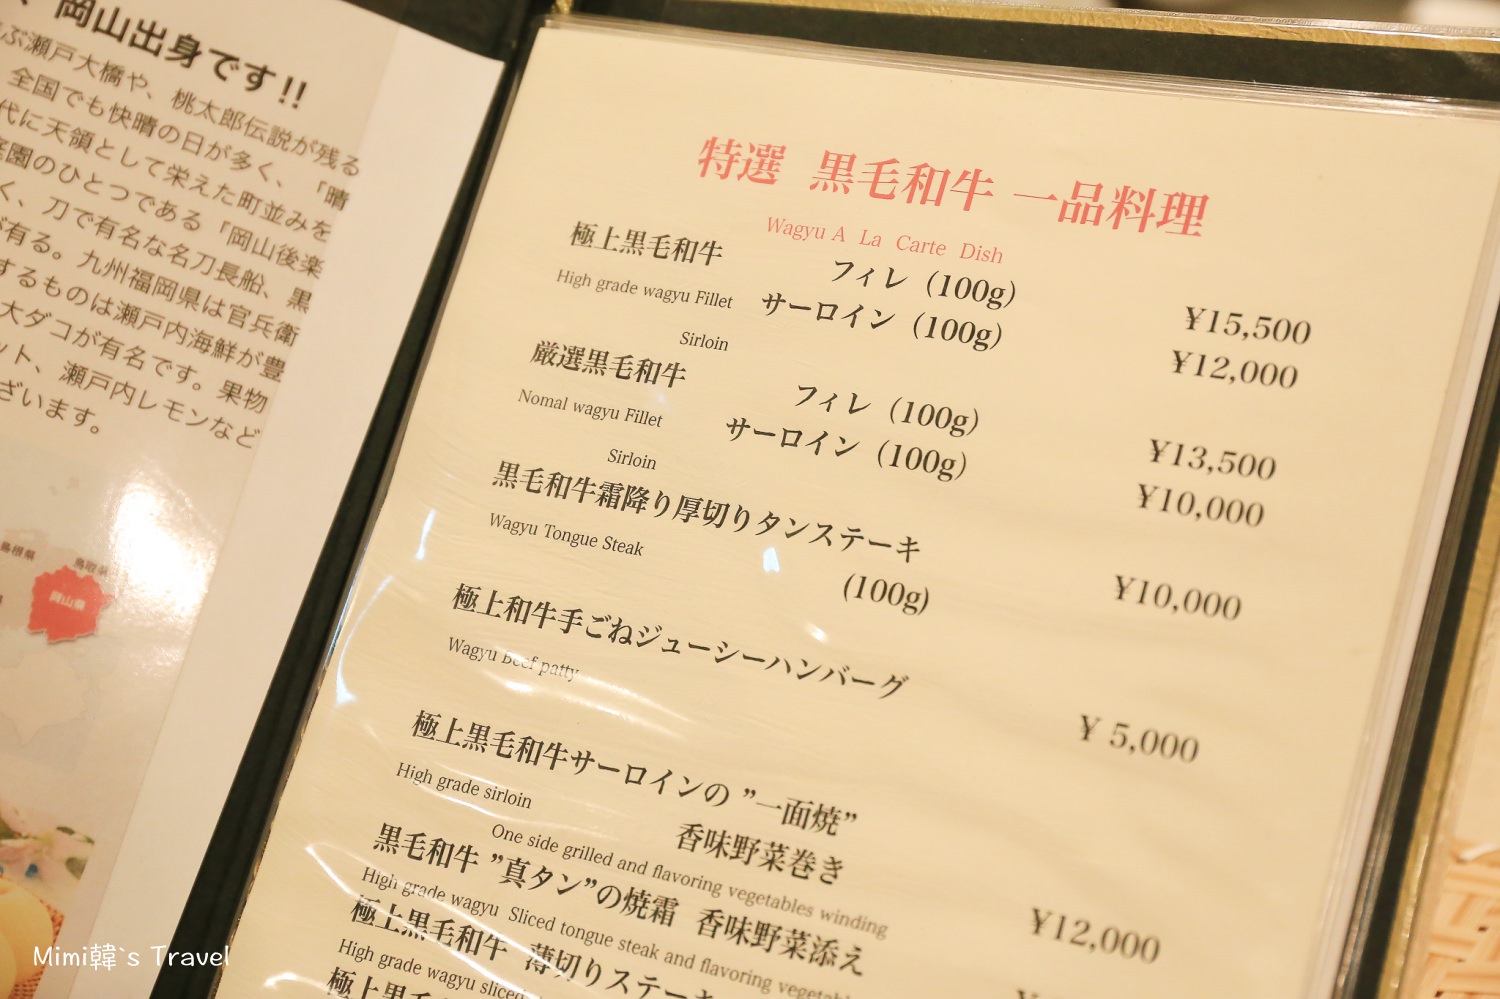 岡山出身です!!
ぶ瀬戸大橋や、桃太郎伝説が残る
全国でも快晴の日が多く、「晴
代に天領として栄えた町並みを
庭園のひとつである「岡山後楽
く、刀で有名な名刀長船、黒
が有る。九州福岡県は官兵衛
するものは瀬戸内海鮮が豊
大ダコが有名です。果物
ット、瀬戸内レモンなど
ざいます。
島根県
鳥取県
岡山県
特選 黒毛和牛 一品料理
Wagyu A La Carte Dish
極上黒毛和牛 フィレ (100g) ¥15,500
High grade wagyu Fillet サーロイン (100g) ¥12,000
Sirloin
厳選黒毛和牛 フィレ (100g) ¥13,500
Nomal wagyu Fillet サーロイン (100g) ¥10,000
Sirloin
黒毛和牛霜降り厚切りタンステーキ
Wagyu Tongue Steak (100g) ¥10,000
極上和牛手ごねジューシーハンバーグ
Wagyu Beef patty ¥ 5,000
極上黒毛和牛サーロインの ”一面焼”
High grade sirloin 香味野菜巻き ¥12,000
One side grilled and flavoring vegetables winding
黒毛和牛 ”真タン”の焼霜 香味野菜添え
High grade wagyu Sliced tongue steak and flavoring vegetabl
極上黒毛和牛 薄切りステーキ
High grade wagyu sliced
極上黒毛
Mimi韓`s Travel